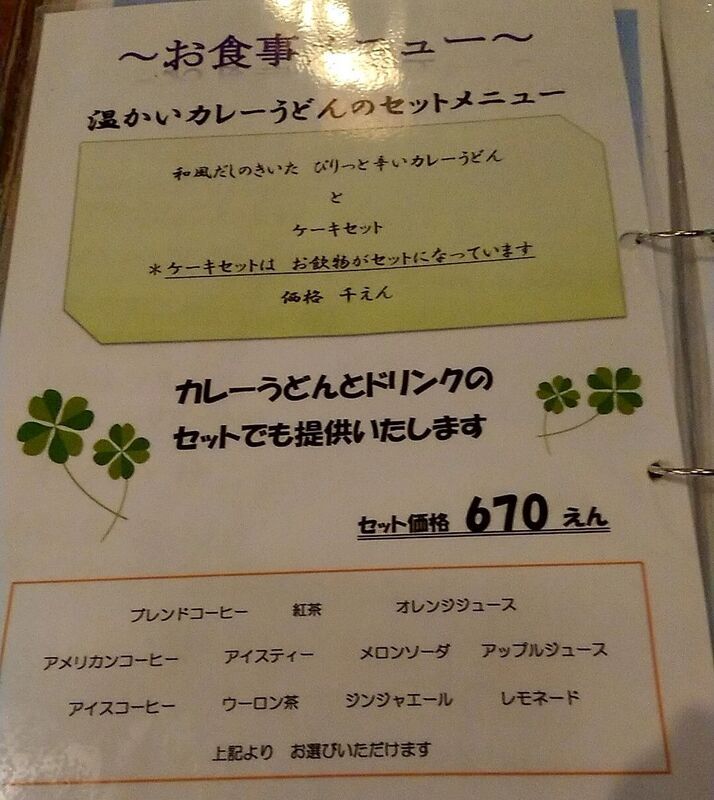 ～お食事メニュー～
温かいカレーうどんのセットメニュー
和風だしのきいた ぴりっと辛いカレーうどん
と
ケーキセット
＊ケーキセットは お飲物がセットになっています
価格 千えん
カレーうどんとドリンクの
セットでも提供いたします
セット価格 670 えん
ブレンドコーヒー 紅茶 オレンジジュース
アメリカンコーヒー アイスティー メロンソーダ アップルジュース
アイスコーヒー ウーロン茶 ジンジャエール レモネード
上記より お選びいただけます